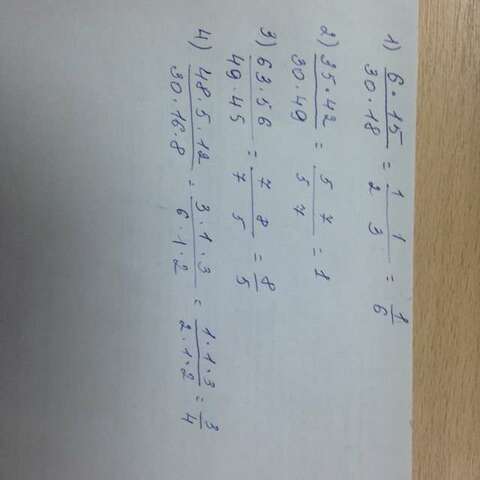 1) 6·15/30·18 = 1 1/2 3 = 1/6
2) 35·42/30·49 = 5 7/5 7 = 1
3) 63·56/49·45 = 7 8/7 5 = 8/5
4) 48·5·12/30·16·8 = 3·1·3/6·1·2 = 1·1·3/2·1·2 = 3/4